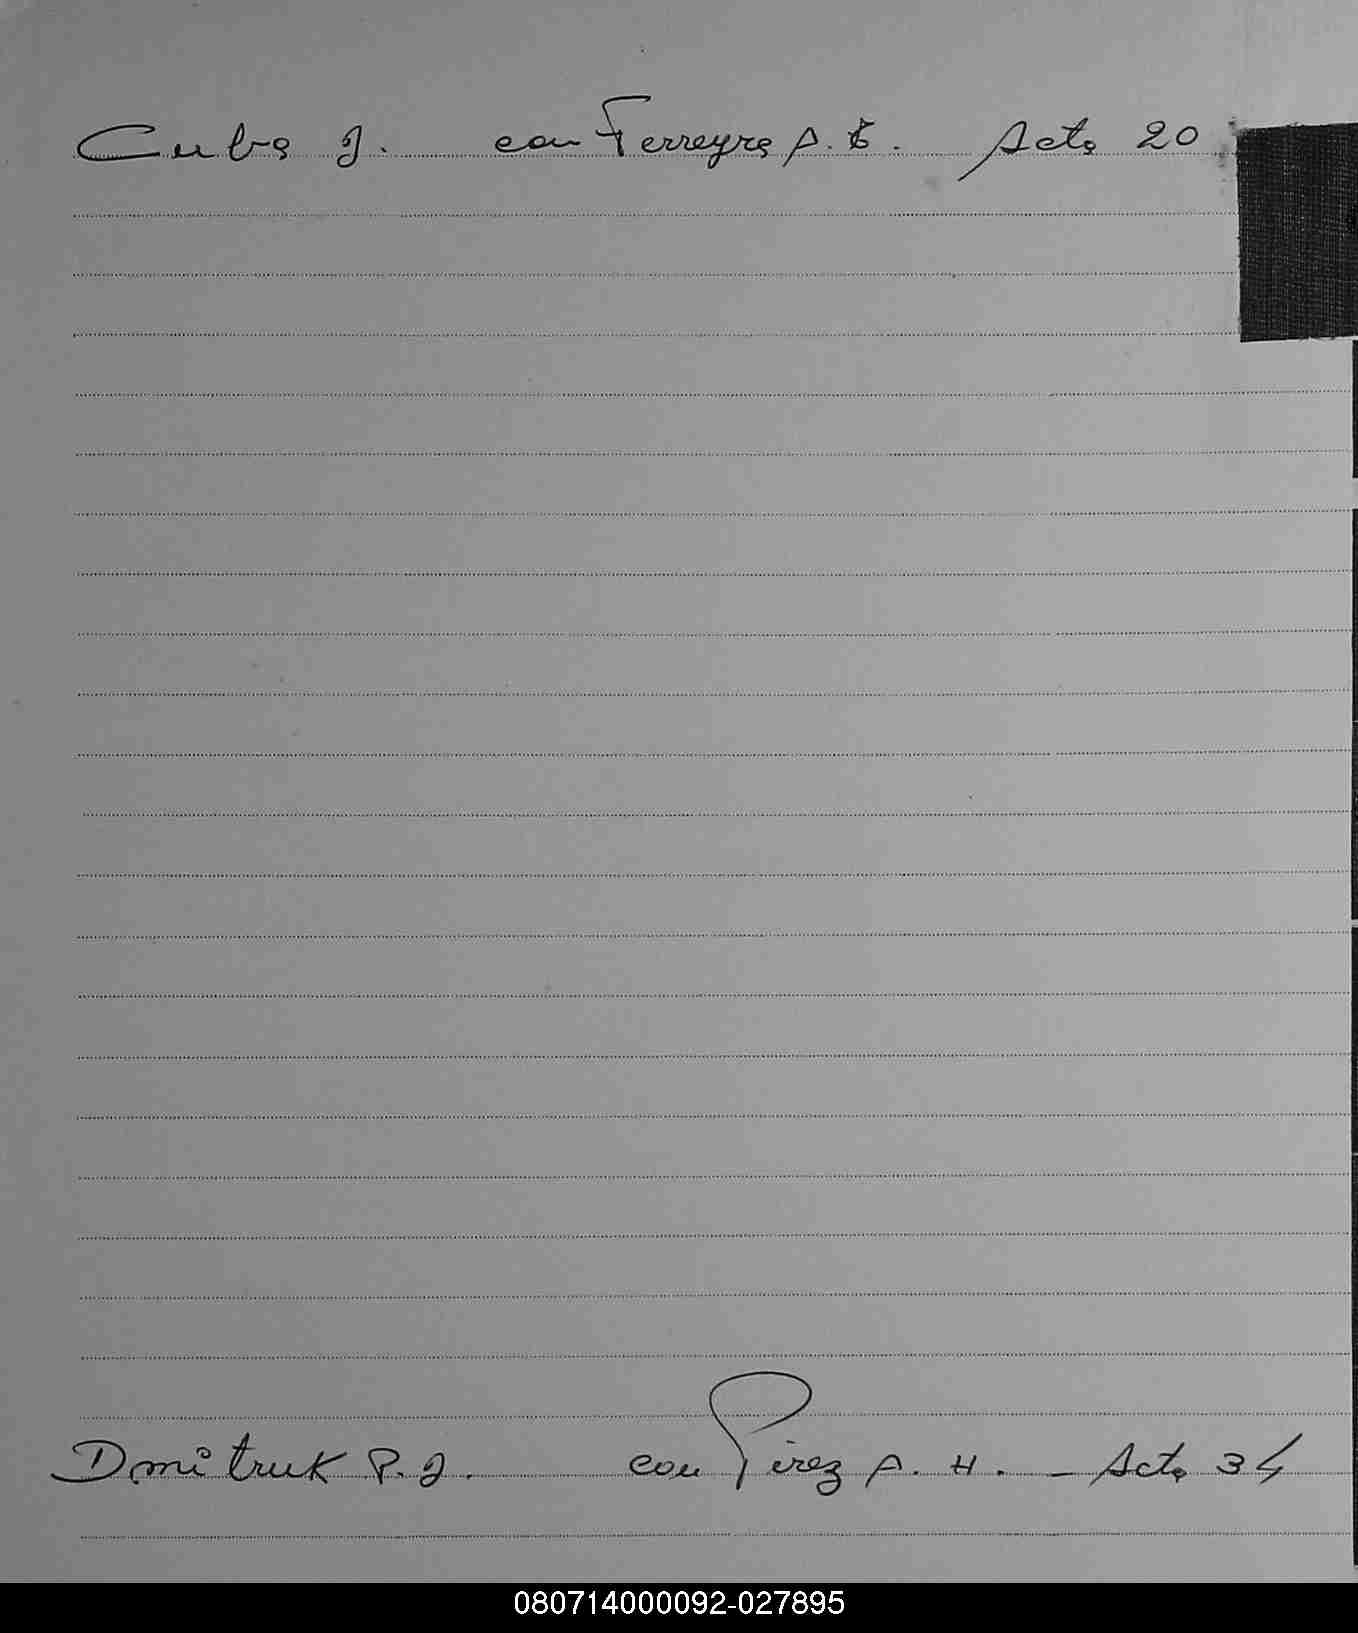 Cuba J. con Ferreyra A. E. Acta 20
Dmitruk P. J. con Pirez A. H. - Acta 34
080714000092-027895